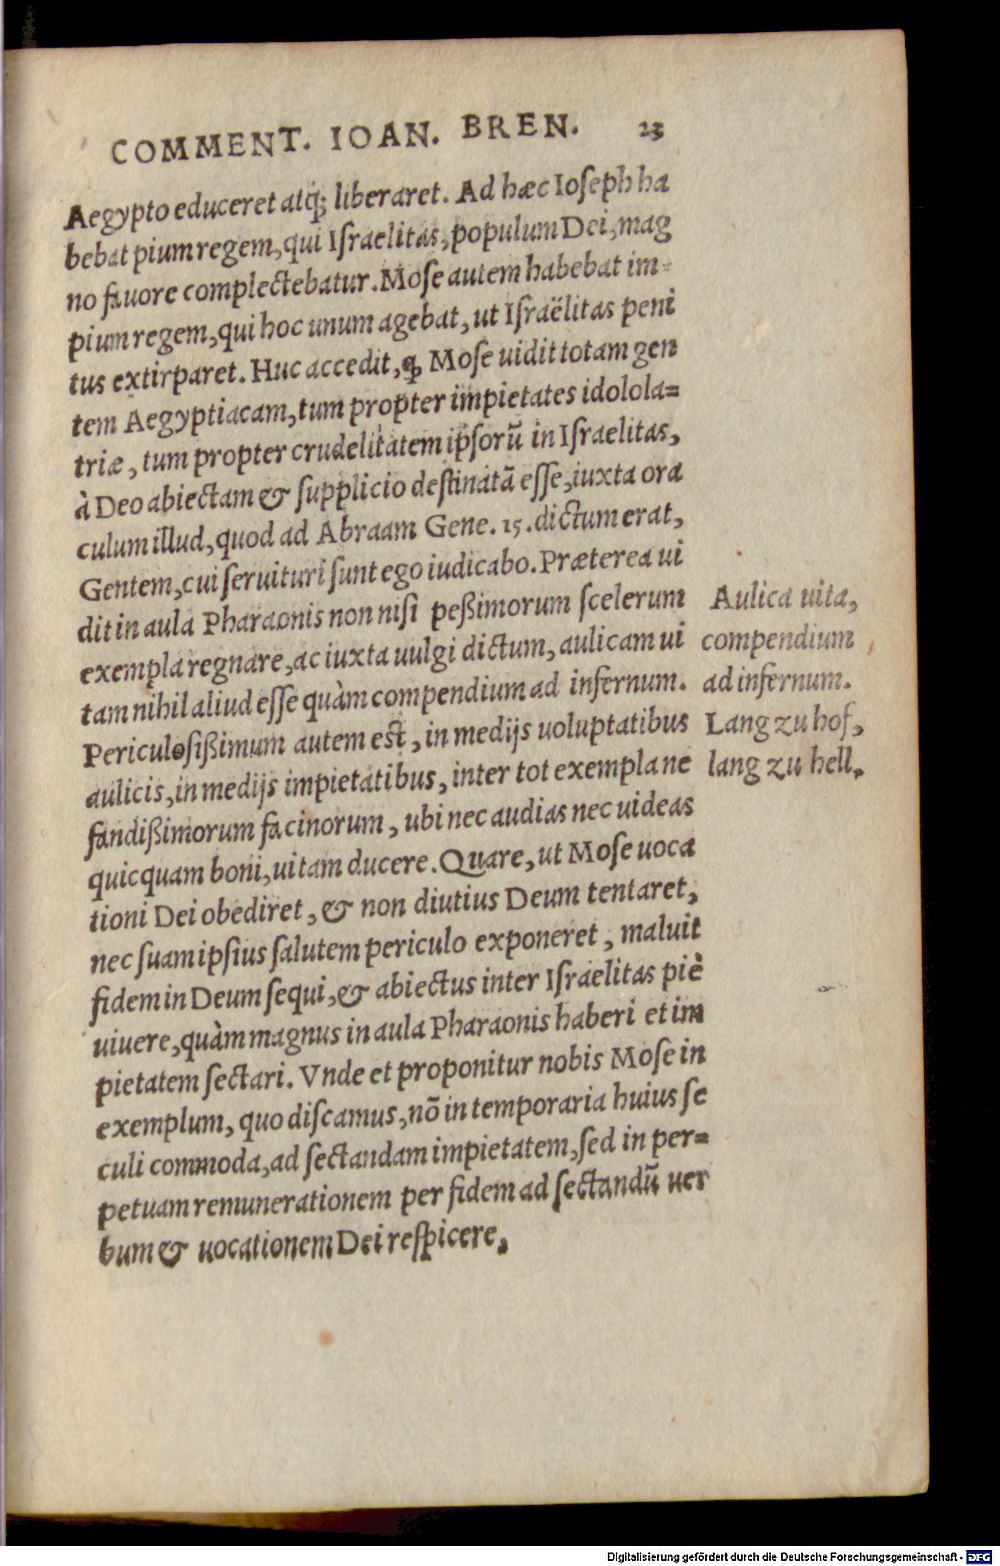 COMMENT. IOAN. BREN. 23
Aegypto educeret atq́; liberaret. Ad hæc Ioseph ha
bebat pium regem, qui Israelitas, populum Dei, mag
no fauore complectebatur. Mose autem habebat im-
pium regem, qui hoc unum agebat, ut Israëlitas peni
tus extirparet. Huc accedit, ꝙ Mose uidit totam gen
tem Aegyptiacam, tum propter impietates idolola=
triæ, tum propter crudelitatem ipsorũ in Israelitas,
à Deo abiectam & supplicio destinatã esse, iuxta ora
culum illud, quod ad Abraam Gene. 15. dictum erat,
Gentem, cui seruituri sunt ego iudicabo. Præterea ui
dit in aula Pharaonis non nisi peßimorum scelerum
exempla regnare, ac iuxta uulgi dictum, aulicam ui
tam nihil aliud esse quàm compendium ad infernum.
Periculosißimum autem est, in medijs uoluptatibus
aulicis, in medijs impietatibus, inter tot exempla ne
fandißimorum facinorum, ubi nec audias nec uideas
quicquam boni, uitam ducere. Quare, ut Mose uoca
tioni Dei obediret, & non diutius Deum tentaret,
nec suam ipsius salutem periculo exponeret, maluit
fidem in Deum sequi, & abiectus inter Israelitas piè
uiuere, quàm magnus in aula Pharaonis haberi et im
pietatem sectari. Vnde et proponitur nobis Mose in
exemplum, quo discamus, nõ in temporaria huius se
culi commoda, ad sectandam impietatem, sed in per=
petuam remunerationem per fidem ad sectandũ uer
bum & uocationem Dei respicere.
Aulica uita,
compendium
ad infernum.
Lang zu hof,
lang zu hell.
Digitalisierung gefördert durch die Deutsche Forschungsgemeinschaft - DFG